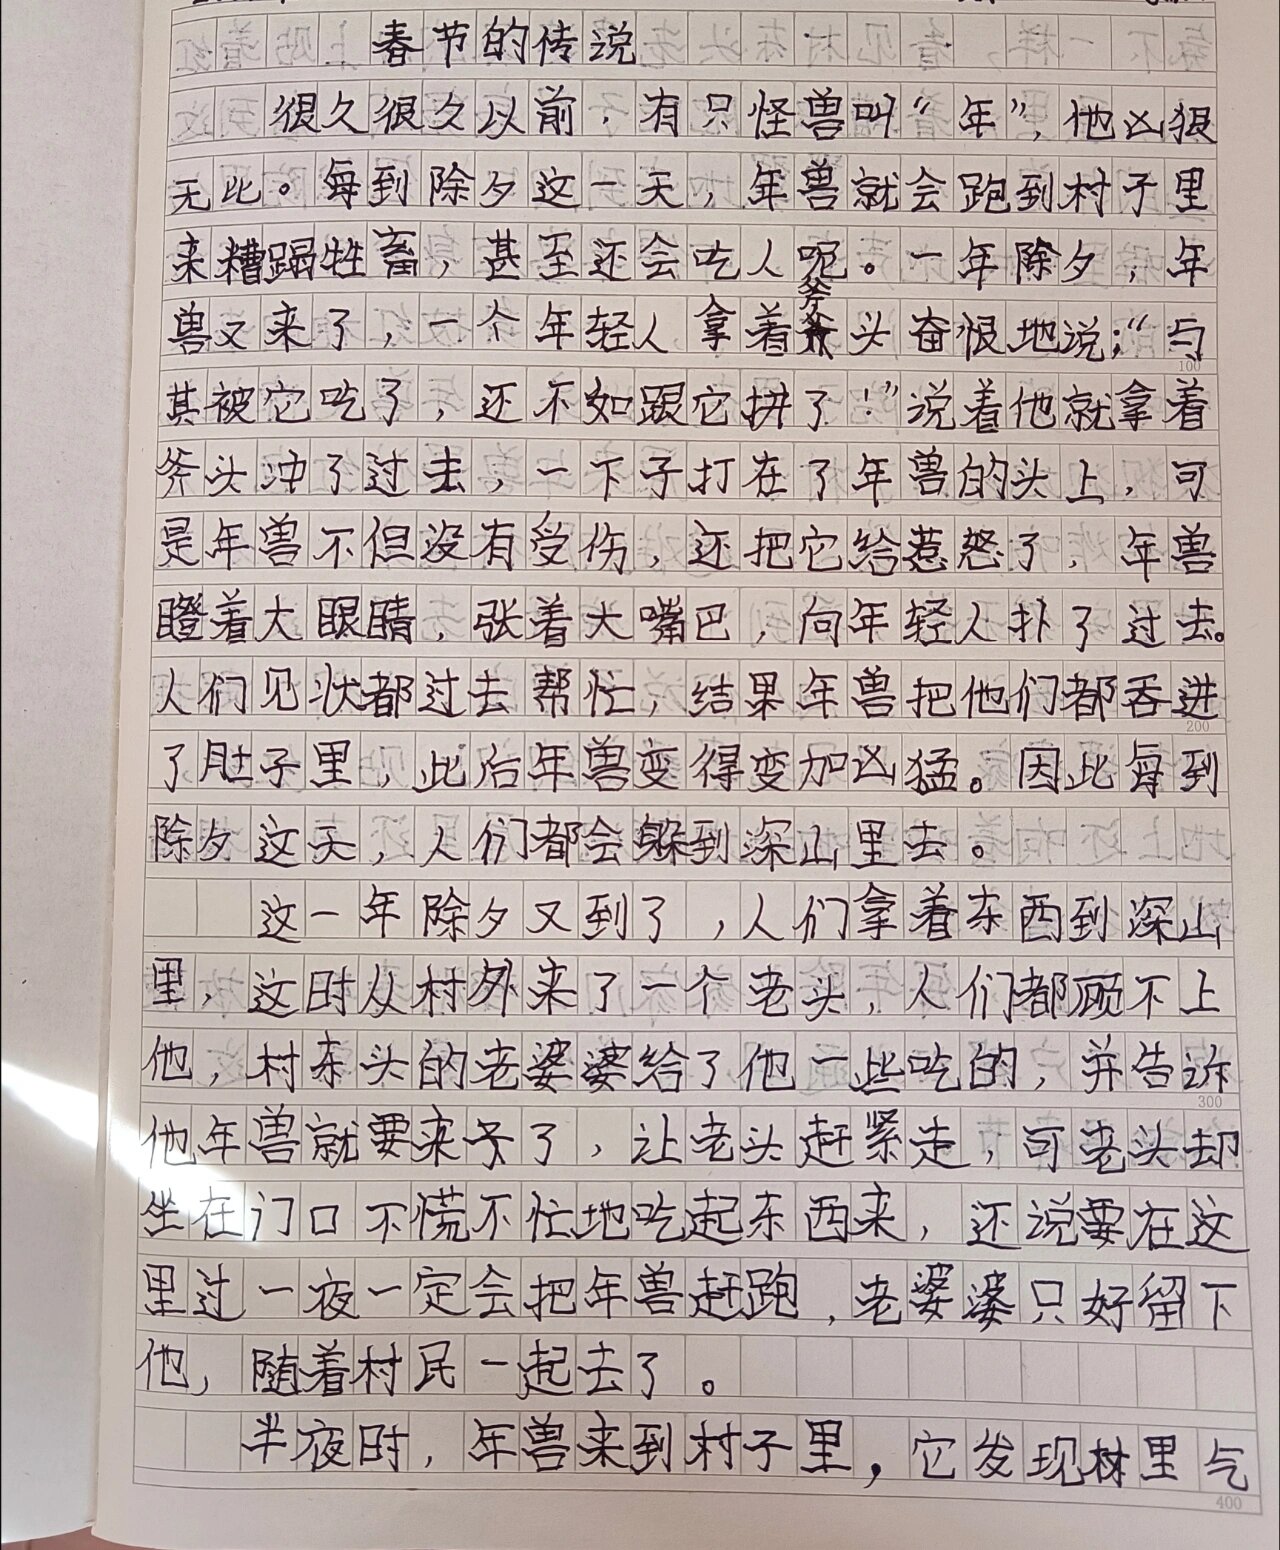 春节的传说
很久很久以前，有只怪兽叫“年”，他凶狠
无比。每到除夕这一天，年兽就会跑到村子里
来糟蹋牲畜，甚至还会吃人呢。一年除夕，年
兽又来了，一个年轻人拿着斧头奋恨地说：“与
其被它吃了，还不如跟它拼了！”说着他就拿着
斧头冲了过去，一下子打在了年兽的头上，可
是年兽不但没有受伤，还把它给惹怒了，年兽
瞪着大眼睛，张着大嘴巴，向年轻人扑了过去。
人们见状都过去帮忙，结果年兽把他们都吞进
了肚子里，此后年兽变得变加凶猛。因此每到
除夕这天，人们都会躲到深山里去。
这一年除夕又到了，人们拿着东西到深山
里，这时从村外来了一个老头，人们都顾不上
他，村东头的老婆婆给了他一些吃的，并告诉
他年兽就要来了，让老头赶紧走，可老头却
坐在门口不慌不忙地吃起东西来，还说要在这
里过一夜一定会把年兽赶跑，老婆婆只好留下
他，随着村民一起去了。
半夜时，年兽来到村子里，它发现林里气